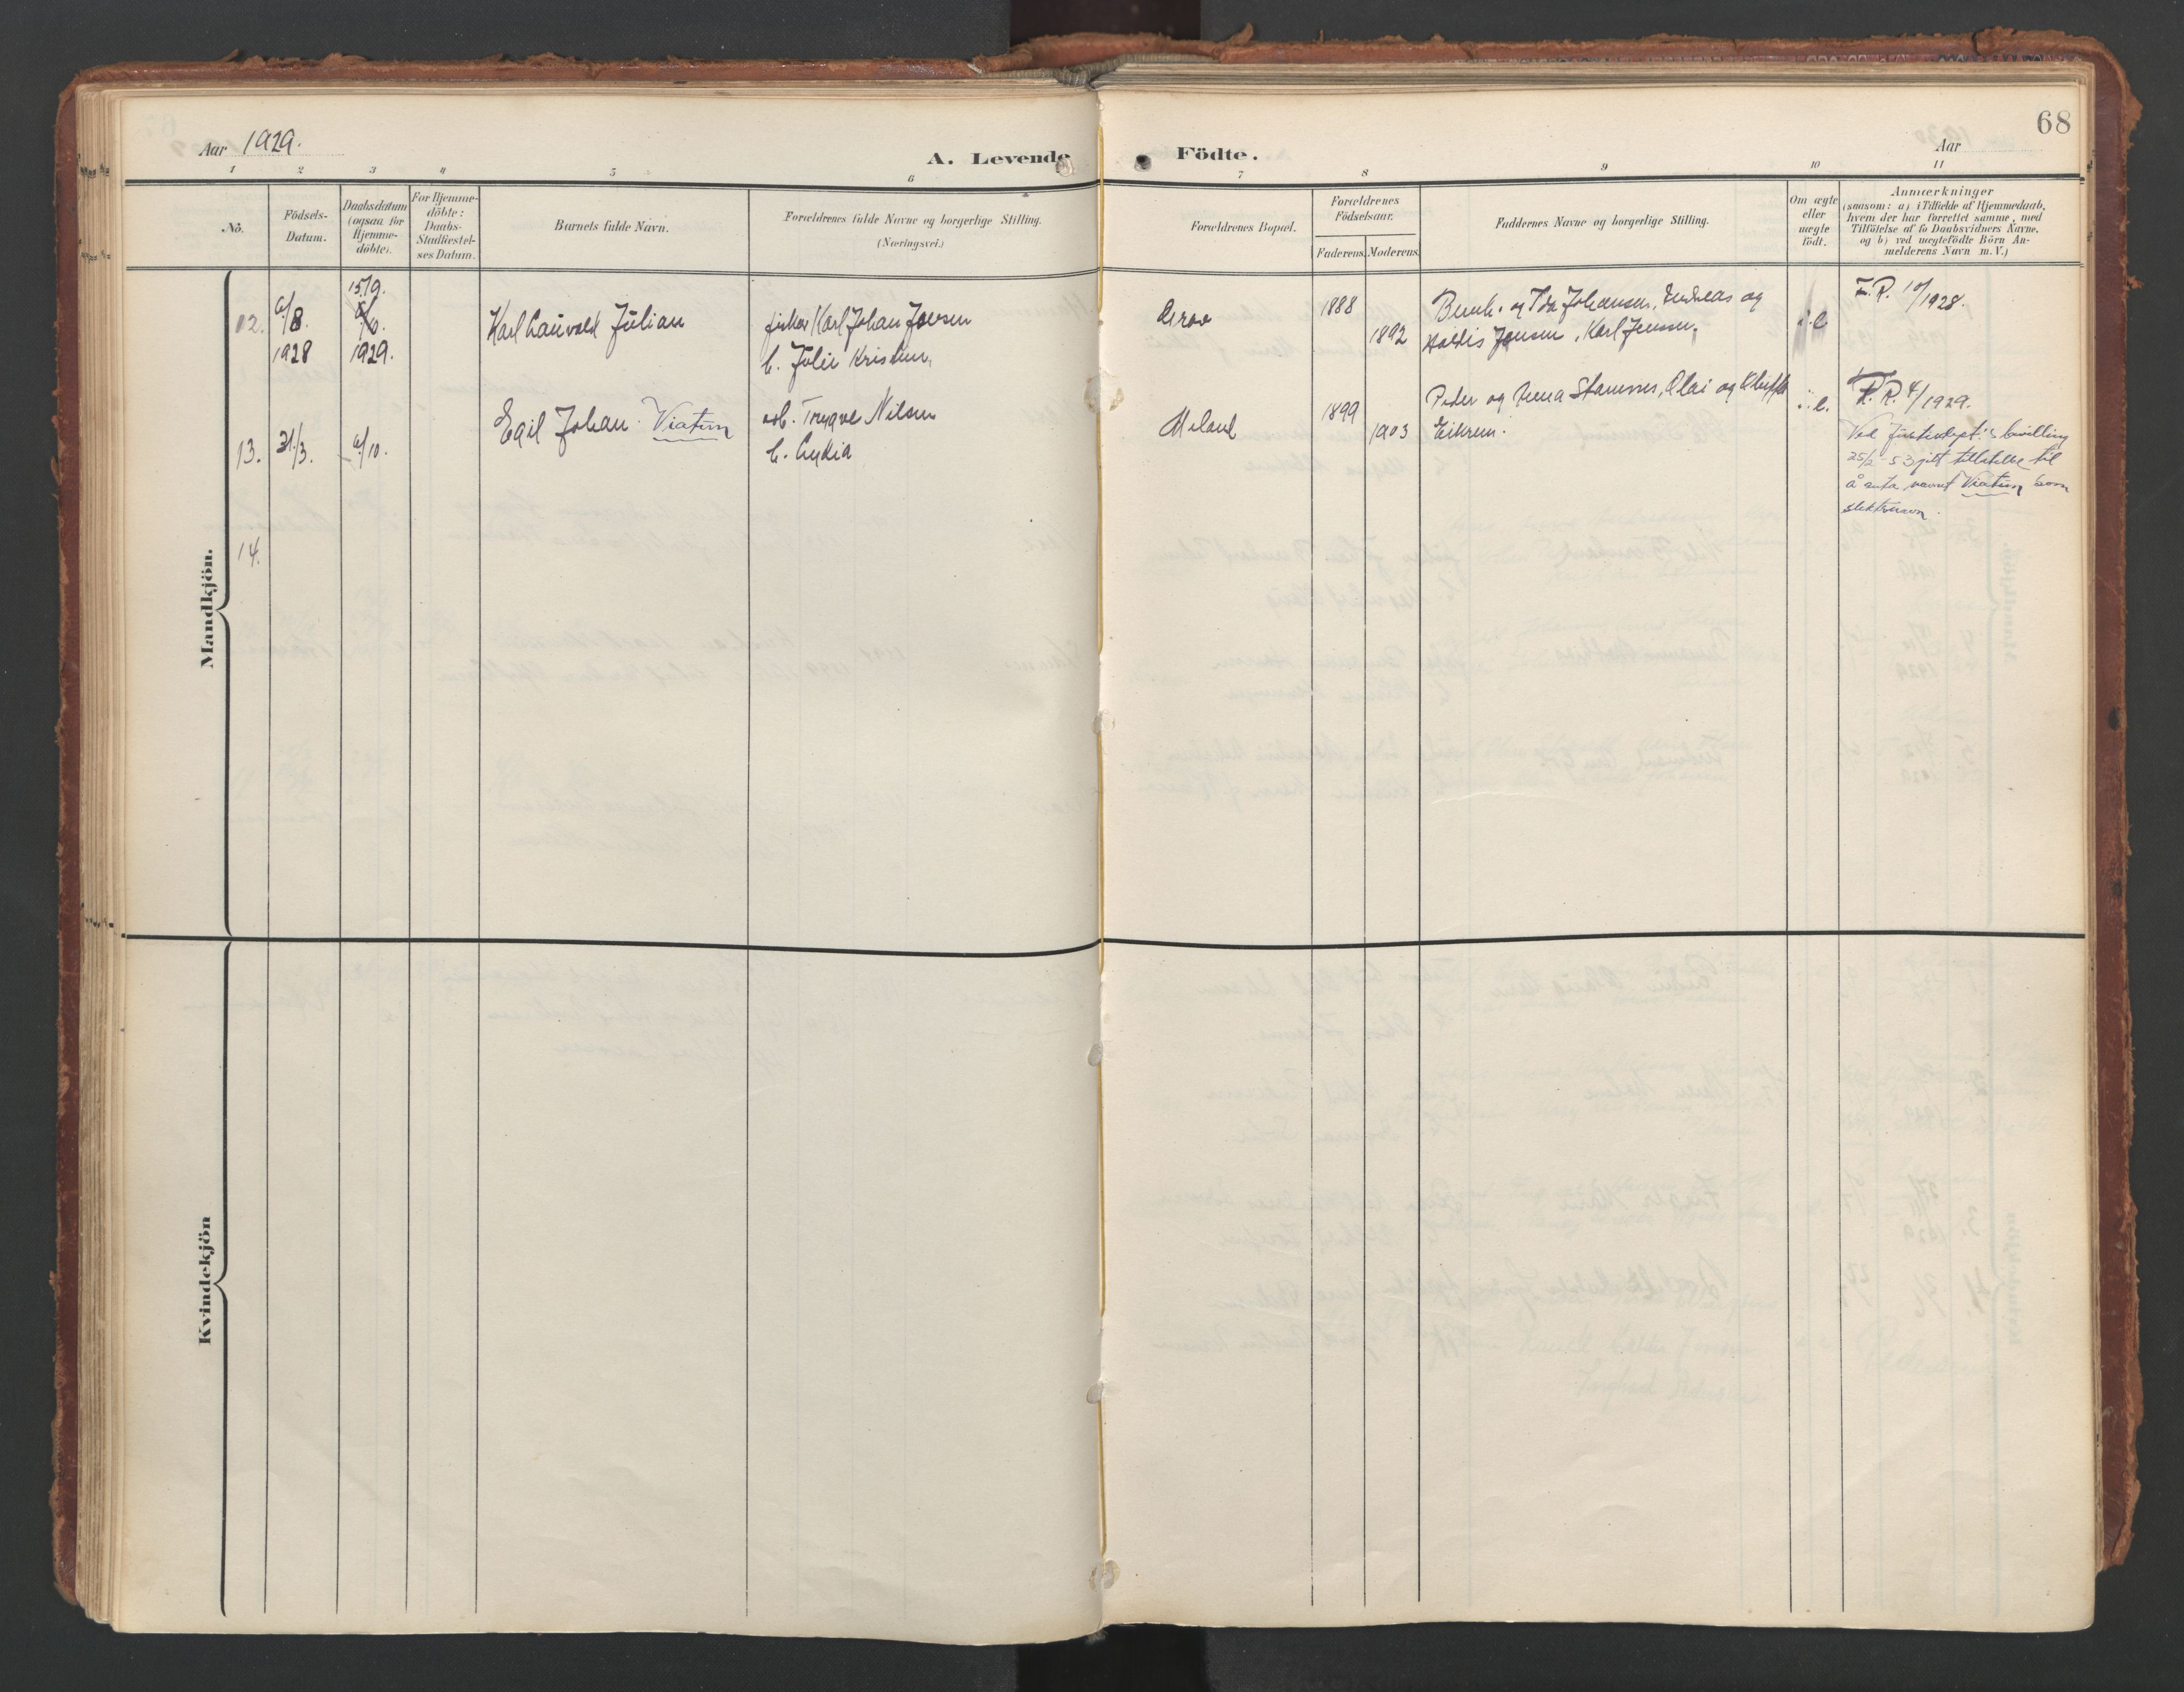 Aar 1929.
A. Levende Födte.
Aar
68
1 2 3 4 5 6 7 8 9 10 11
No.
Födsels-
Datum.
Daabsdatum
(ogsaa for
Hjemme-
döbte).
For Hjemme-
döbte:
Daabs-
Stadfæstel-
ses Datum.
Barnets fulde Navn.
Forældrenes fulde Navne og borgerlige Stilling.
(Næringsvei.)
Forældrenes Bopæl.
Forældrenes
Födselsaar.
Faderens. Moderens.
Faddernes Navne og borgerlige Stilling.
Om ægte
eller
uægte
födt.
Anmærkninger
(saasom: a) i Tilfælde af Hjemmedaab,
hvem der har forrettet samme, med
Tilföielse af to Daabsvidners Navne.
og b) ved uægtefödte Börn An-
melderens Navn m. V.)
Mandkjön.
12.
6/8.
1928
15/9.
1929.
Karl Laurold Julian
fisker Karl Johan Jensen
h. Julie Kristine,
1888
1892
Bernh. og Ida Johansen, Andreas og
Haldis Jensen, Karl Jensen.
i.e
F.R. 10/1928.
13.
31/3.
6/10.
Egil Johan Viatun
arb. Trygve Nilsen
h. Lydia
Meland
1899
1903
Peder og Anna Stamnes, Olai og
Eikrem.
i.e.
F.R. 4/1929.
Ved justisdept.'s bevilling
25/2-53 gitt tillatelse til
å anta navnet Viatun som
slektsnavn.
14.
Kvindekjön